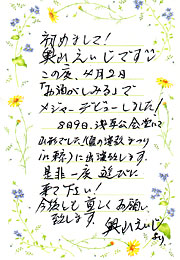 初めまして!
奥山えいじです
この度、4月2日
「お酒がしみる」で
メジャーデビューしました!
8月9日、浅草公会堂にて
in 粋)に出演致します。
是非一度遊びに
来て下さい!
今後とも宜しくお願い
致します。
奥山えいじ
より